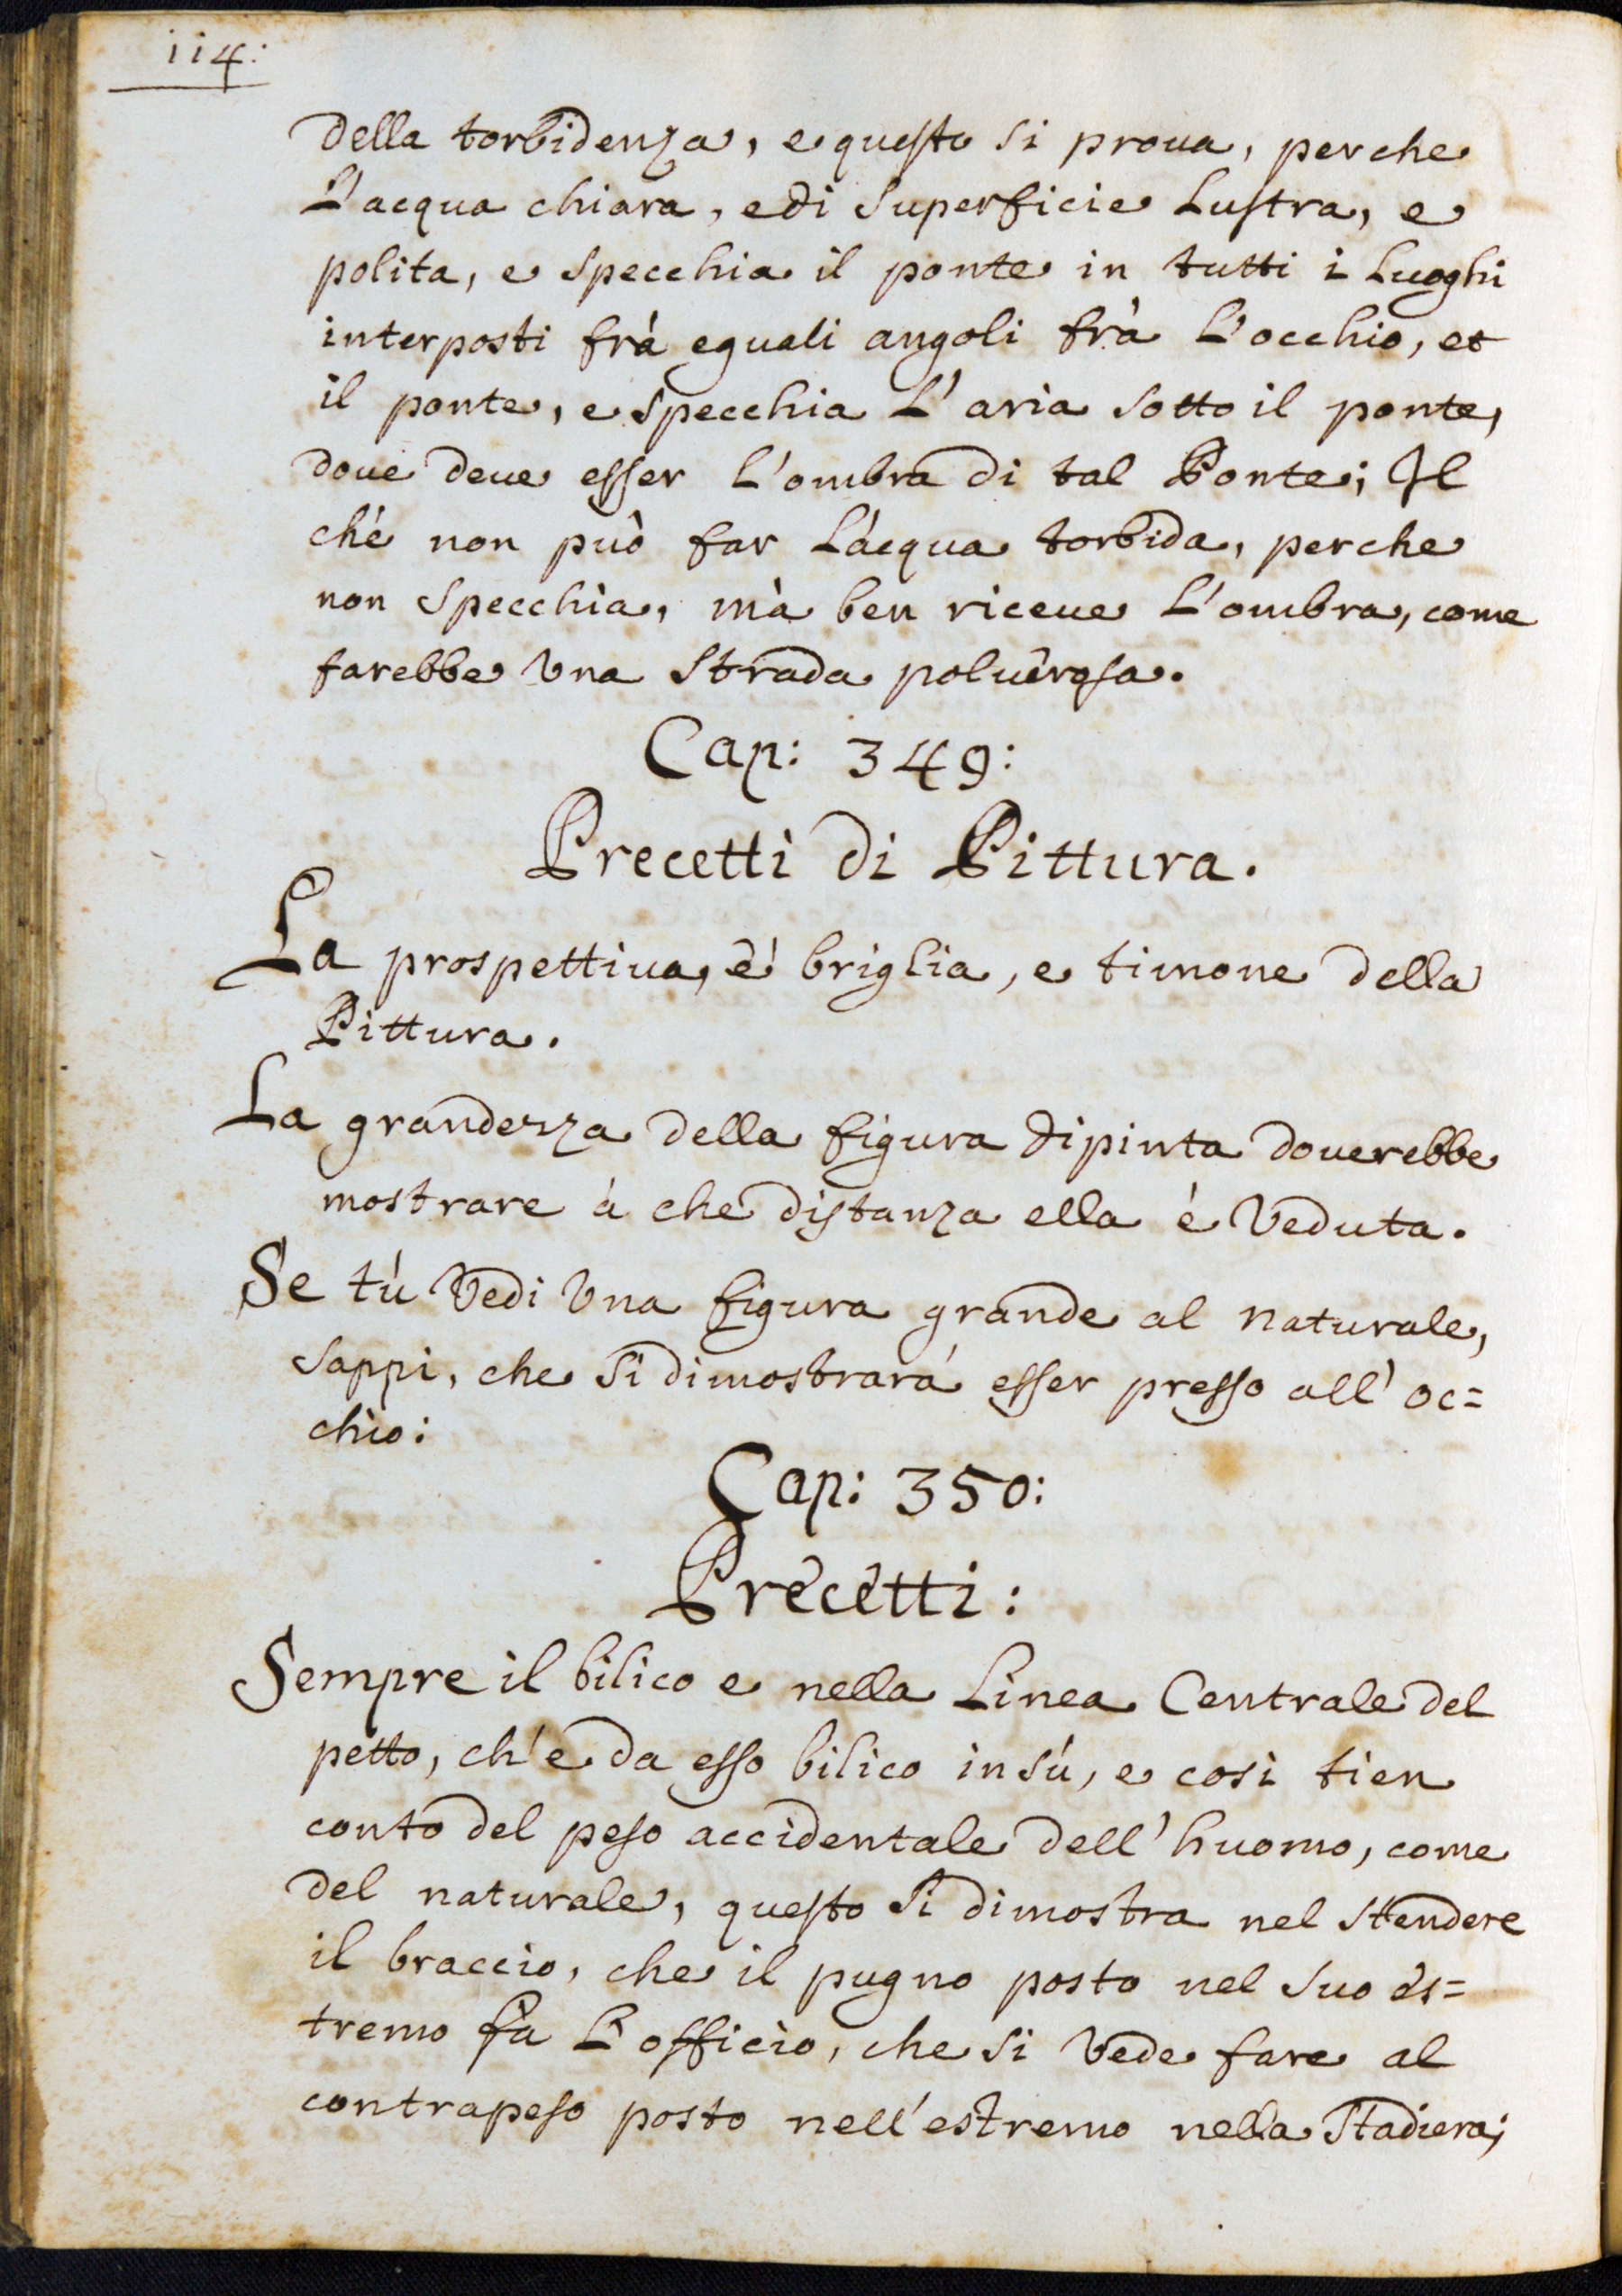 114:
della torbidenza, e questo si proua, perche
L'acqua chiara, e di superficie Lustra, e
polita, e specchia il ponte in tutti i Luoghi
interposti frà eguali angoli frà L'occhio, et
il ponte, e specchia L'aria sotto il ponte,
doue deue esser L'ombra di tal Ponte; Il
chè non può far L'acqua torbida, perche
non specchia, mà ben riceue L'ombra, come
farebbe Vna Strada poluerosa.
Cap: 349:
Precetti di Pittura.
La prospettiua, è briglia, e timone della
Pittura.
La grandezza della figura dipinta douerebbe
mostrare à che distanza ella è Veduta.
Se tù Vedi Vna figura grande al naturale,
sappi, che si dimostrarà esser presso all' oc=
chio:
Cap: 350:
Precetti:
Sempre il bilico e nella Linea Centrale del
petto, ch'è da esso bilico in sù, e così tien
conto del peso accidentale dell'huomo, come
del naturale, questo si dimostra nel stendere
il braccio, che il pugno posto nel suo es=
tremo fà L'officio, che si Vede fare al
contrapeso posto nell'estremo nella Stadiera;